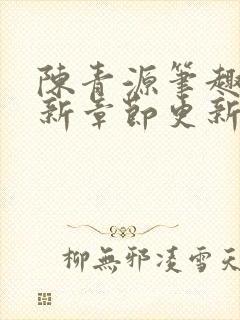 陳青源筆趣
新章節更新
柳無邪凌雪天